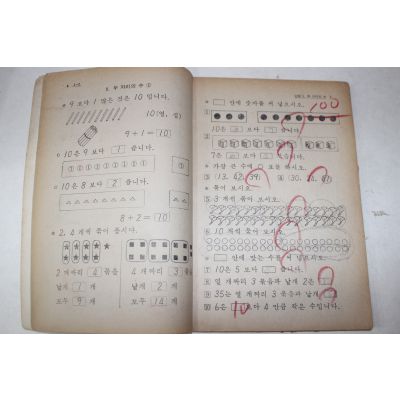 5. 두 자리의 수 ①
9 보다 1 많은 것은 10 입니다.
10(열, 십)
9+1=10
10은 9 보다 1 큽니다.
①①①①①①①①① ①
10은 8 보다 2 큽니다.
8+2=10
2, 4 개씩 묶어 봅시다.
2 개짜리 4 묶음
낱개 1 개
모두 9 개
4 개짜리 3 묶음
낱개 2 개
모두 14 개
안에 숫자를 써 넣으시오.
100
①
10은 보다 큽니다.
②
7은 보다 큽니다.
가장 큰 수에 ○표를 하시오.
③ 13, 42, 39
④ 30,
묶어 보시오.
⑤ 3 개씩 묶어 보시오.
⑥ 10 개씩 묶어 보시오.
안에 맞는 수를 써 넣으시오.
⑦ 10은 5 보다 큽니다.
⑧ 열 개짜리 3 묶음과 낱개 2은
⑨ 35는 열 개짜리 3 묶음과 낱개
⑩ 6은 보다 4 만큼 작은 수입니다.
10